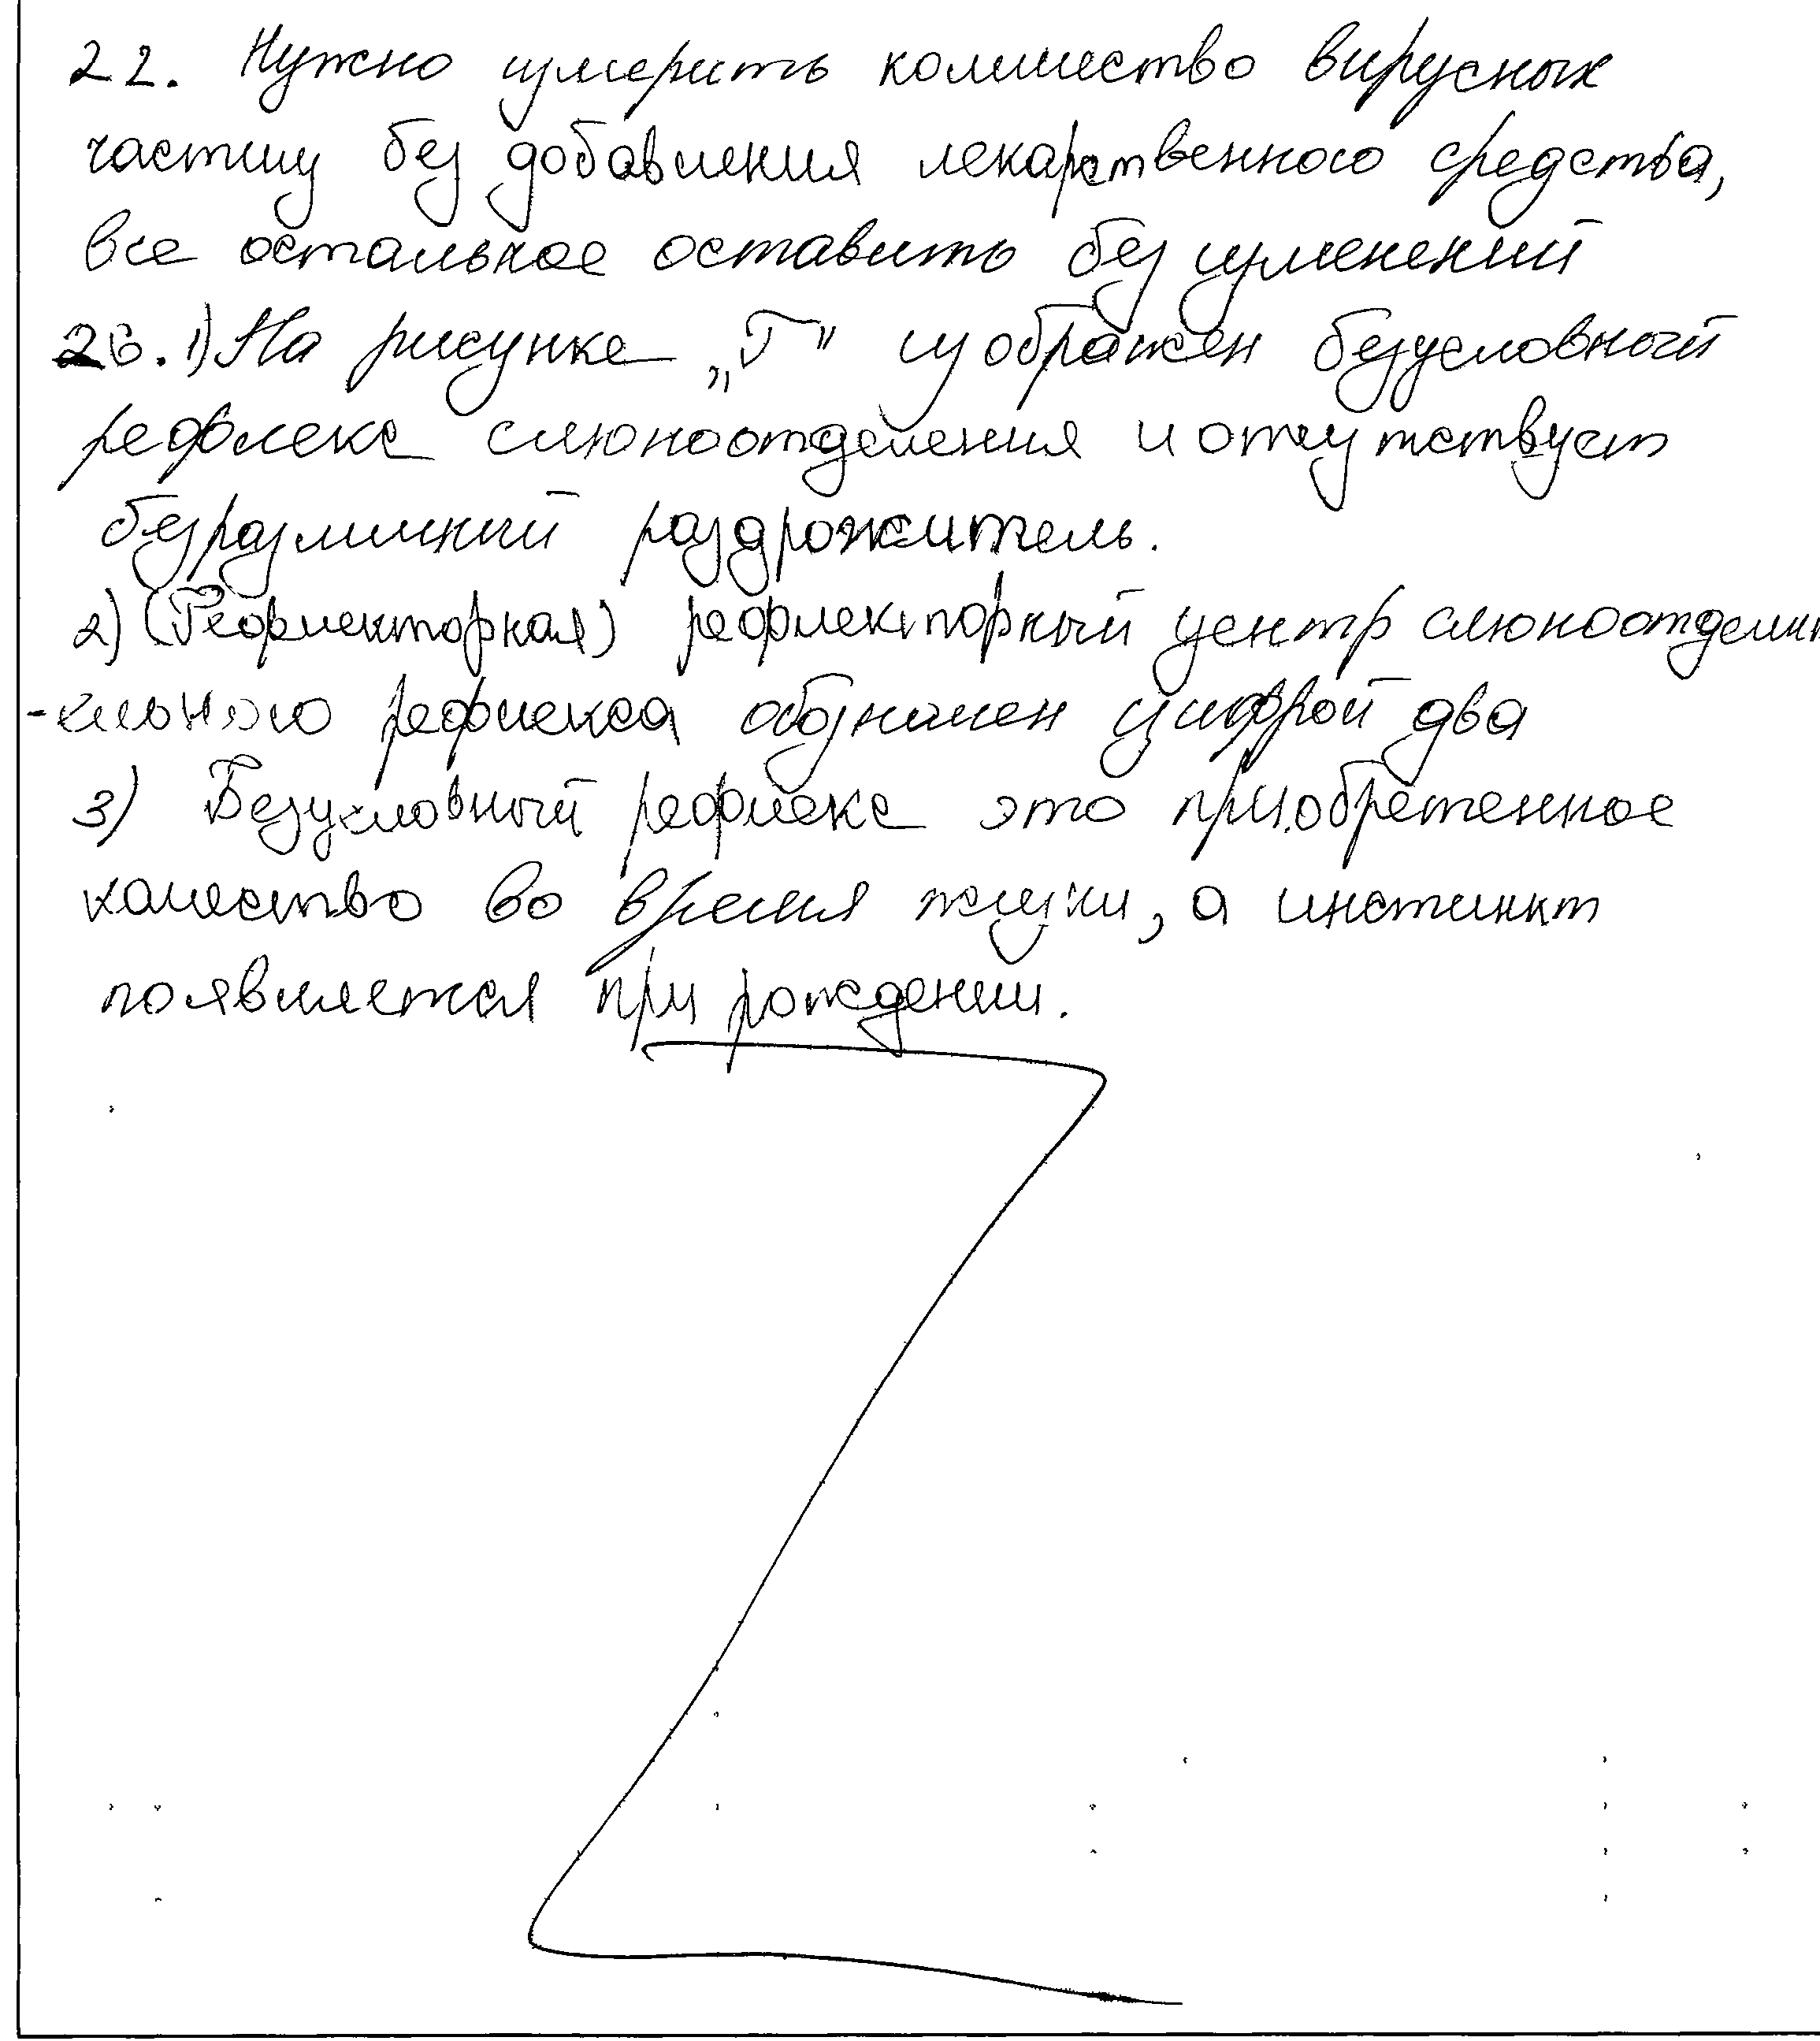 22. Нужно измерить количество вирусных
частиц без добавления лекарственного средства,
все остальное оставить без изменений
26. 1) На рисунке „Г" изображен безусловный
рефлекс слюноотделения и отсутствует
безразличный раздрожитель.
2) (Рефлекторная) рефлекторный центр слюноотделит
-ельного рефлекса обозначен цифрой два
3) Безусловный рефлекс это приобретенное
качество во время жизни, а инстинкт
появляется при рождении.